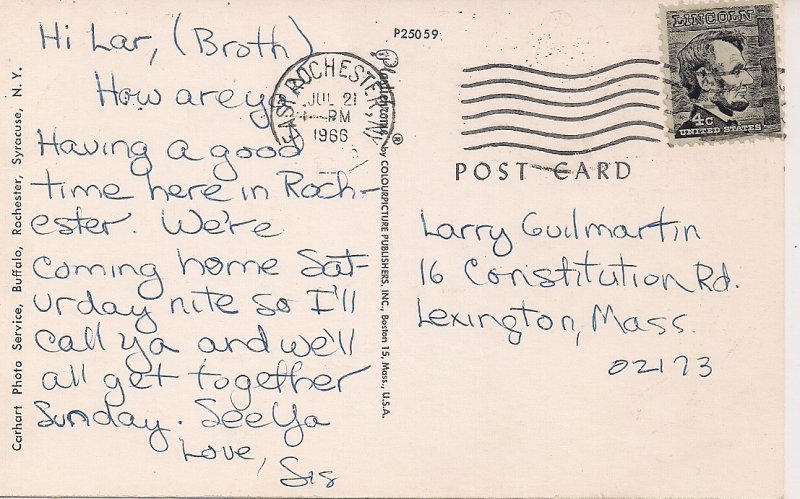 Hi Lar, (Broth)
How are ya
Having a good
time here in Roch-
ester. We're
coming home Sat-
urday nite so I'll
call ya and we'll
all get together
Sunday. See Ya
Love,
Sis
Carhart Photo Service, Buffalo, Rochester, Syracuse, N. Y.
P25059
Plastichrome ® by COLOURPICTURE PUBLISHERS, INC., Boston 15, Mass., U.S.A.
EAST ROCHESTER, N.
JUL 21
PM
1966
LINCOLN
4c
UNITED STATES
POST CARD
Larry Guilmartin
16 Constitution Rd.
Lexington, Mass.
02173